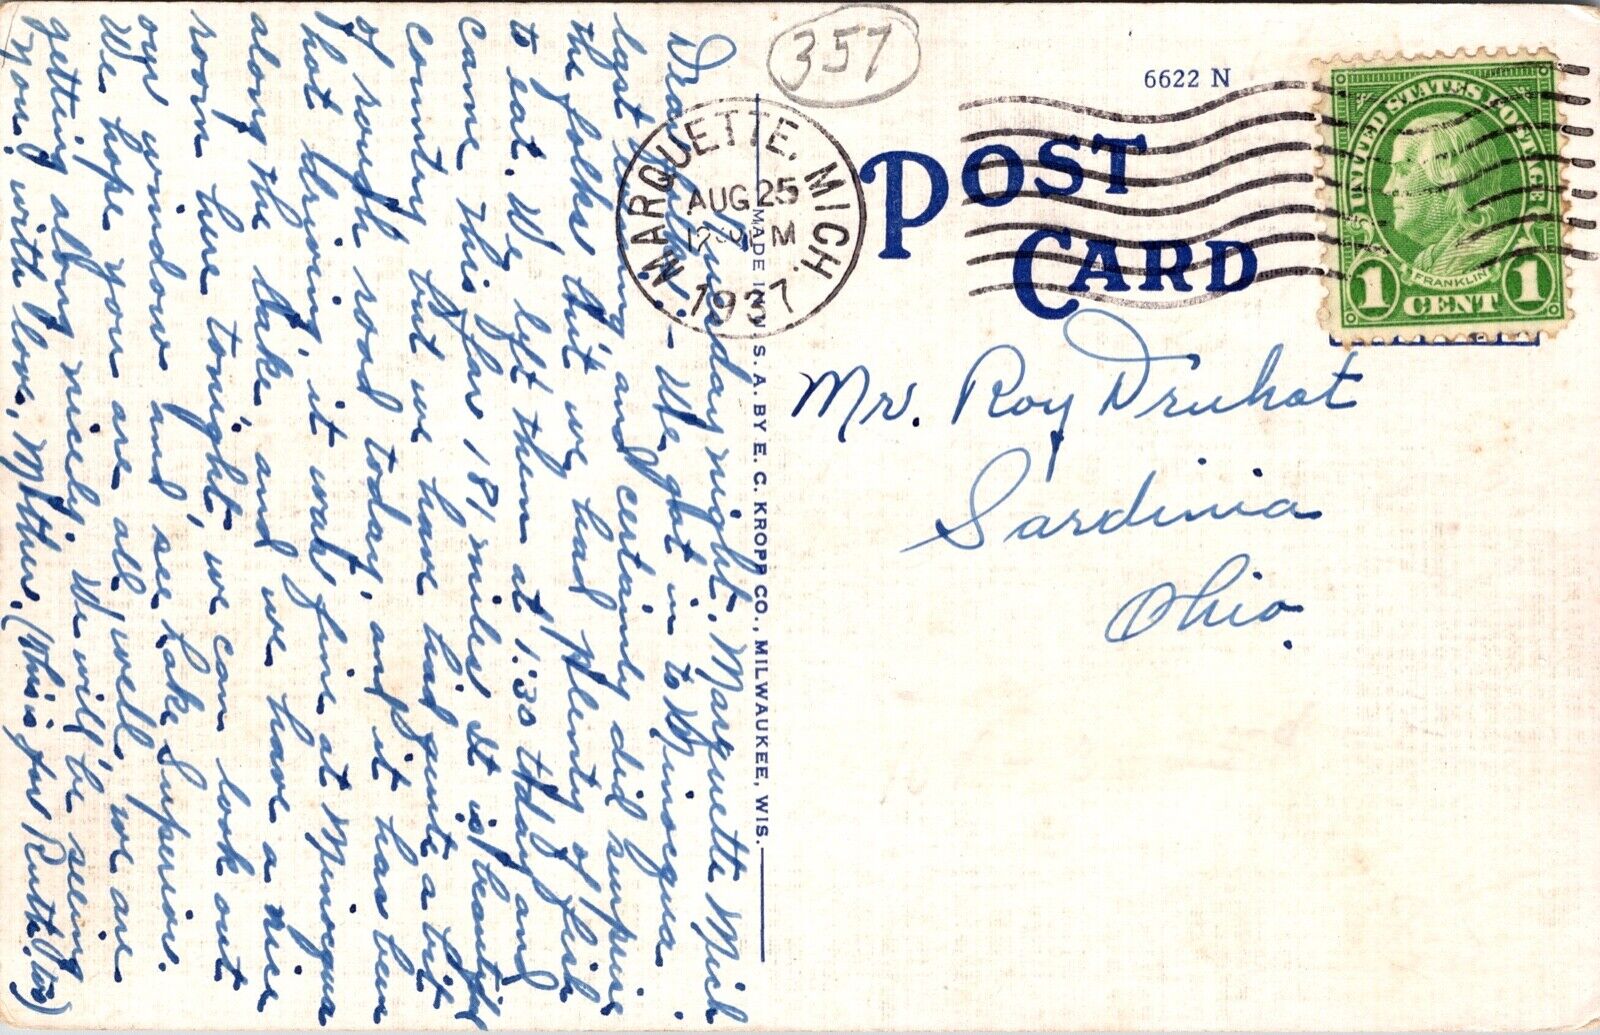 Tuesday night, Marquette Mich
Dear Folks:- We got in to Minocqua
last evening and certainly did surprise
the folks but we had plenty of fish
to eat. We left them at 1:30 today and
came this far 181 miles. It is beautiful
country but we have had quite a bit
of rough road today, and it has been
hot driving, it was fine at Minocqua
along the lake and we have a nice
room here tonight, we can look out
our window and see Lake Superior.
We hope you are all well, we are
getting along nicely. We will be seeing
you. with love, Mother. (This is for Ruth too)
357
6622 N
POST
CARD
MARQUETTE, MICH.
AUG 25
M
1937
UNITED STATES POSTAGE
FRANKLIN
1 CENT 1
MADE IN U. S. A. BY E. C. KROPP CO., MILWAUKEE, WIS.
Mr. Roy Druhot
Sardinia
Ohio.